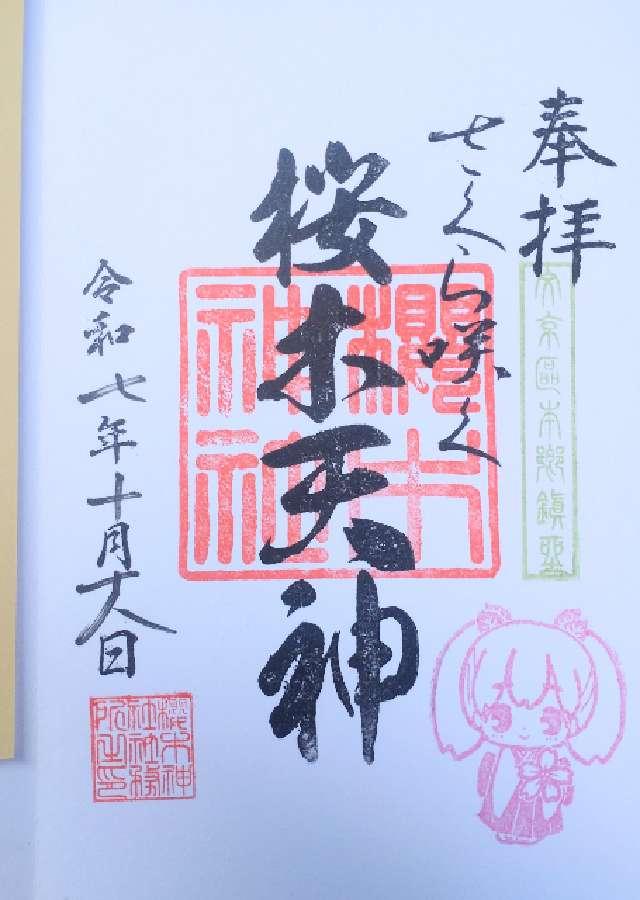 奉拝
文京區本鄉鎮座
さくら咲く
桜木天神
櫻木
神社
令和七年十月十八日
櫻木神
社社務
所之印